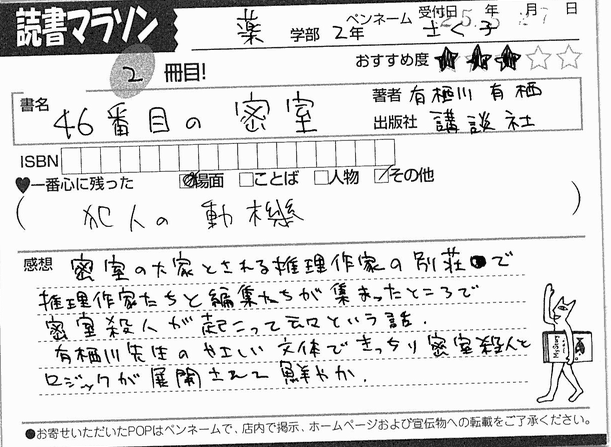 読書マラソン
薬 学部 2年 ペンネーム さくら子 受付日 25年5月27日
2 冊目!
おすすめ度 ★★★☆☆
書名 46番目の密室
著者 有栖川 有栖
出版社 講談社
ISBN
♥一番心に残った ☑場面 □ことば □人物 ☑その他
( 犯人の動機 )
感想 密室の大家とされる推理作家の別荘で
推理作家たちと編集たちが集まったところで
密室殺人が起こって云々という話.
有栖川先生のやさしい文体できっちり密室殺人と
ロジックが展開されて鮮やか.
●お寄せいただいたPOPはペンネームで、店内で掲示、ホームページおよび宣伝物への転載をご了承ください。